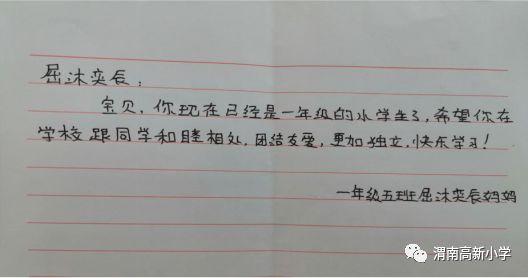 屈沐奕辰：
宝贝，你现在已经是一年级的小学生了，希望你在
学校跟同学和睦相处，团结友爱，更加独立，快乐学习！
一年级五班屈沐奕辰妈妈
渭南高新小学